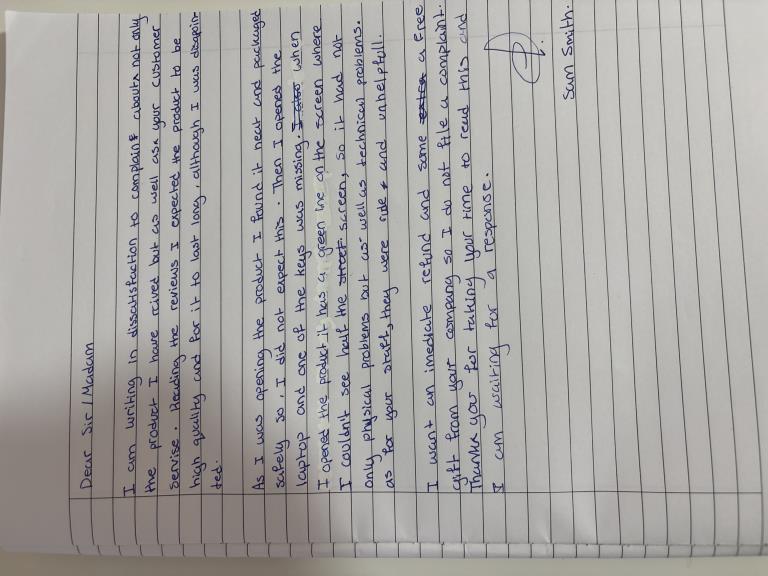 Dear Sir / Madam
I am writing in dissatisfaction to complain about not only
the product I have rived but as well ask your customer
servise. Reading the reviews I expected the product to be
high quality and for it to last long, although I was disapoin-
ted.
As I was opening the product I found it neat and packaged
safely so, I did not expect this. Then I opened the
laptop and one of the keys was missing. I also when
I opened the product it has a green line on the screen where
I couldn't see half the street screen, so it had not
only physical problems but as well as technical problems.
as for your staff, they were ride and unhelpfull.
I want an imediate refund and some extra a free
gift from your company so I do not file a complaint.
Thanks you for taking your time to read this and
I am waiting for a response.
Sam Smith.